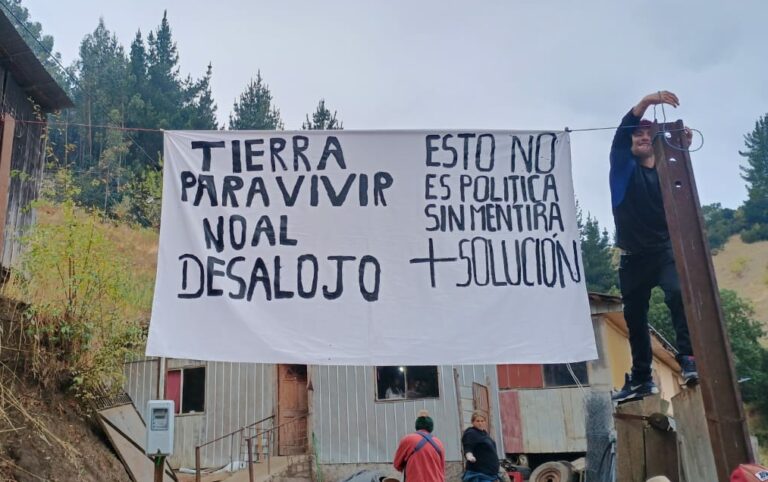 TIERRA
PARA VIVIR
NO AL
DESALOJO
ESTO NO
ES POLITICA
SIN MENTIRA
+ SOLUCIÓN